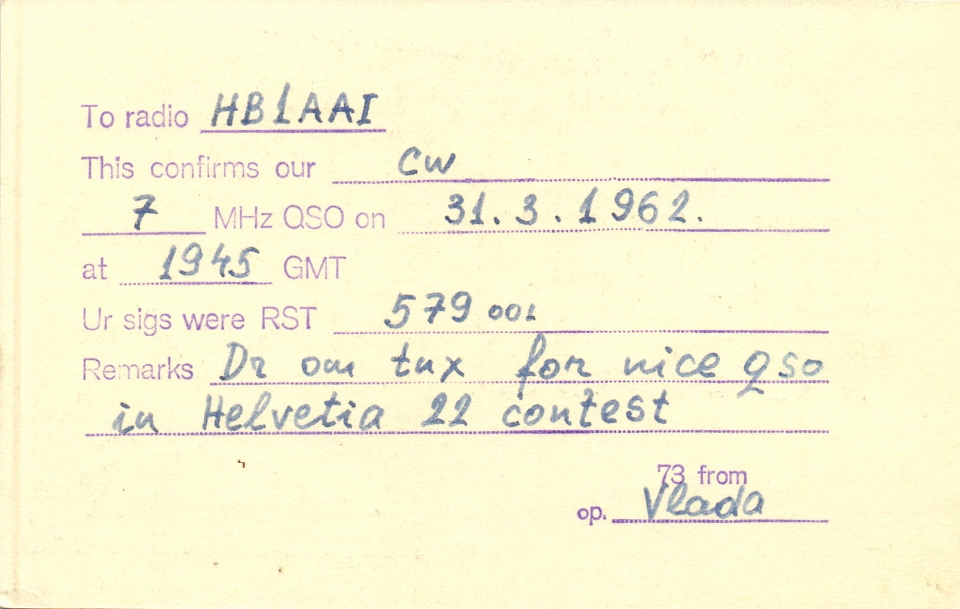 To radio HB1AAI
This confirms our CW
7 MHz QSO on 31.3.1962.
at 1945 GMT
Ur sigs were RST 579 001
Remarks Dr om tnx for nice qso
in Helvetia 22 contest
73 from
op. Vlada